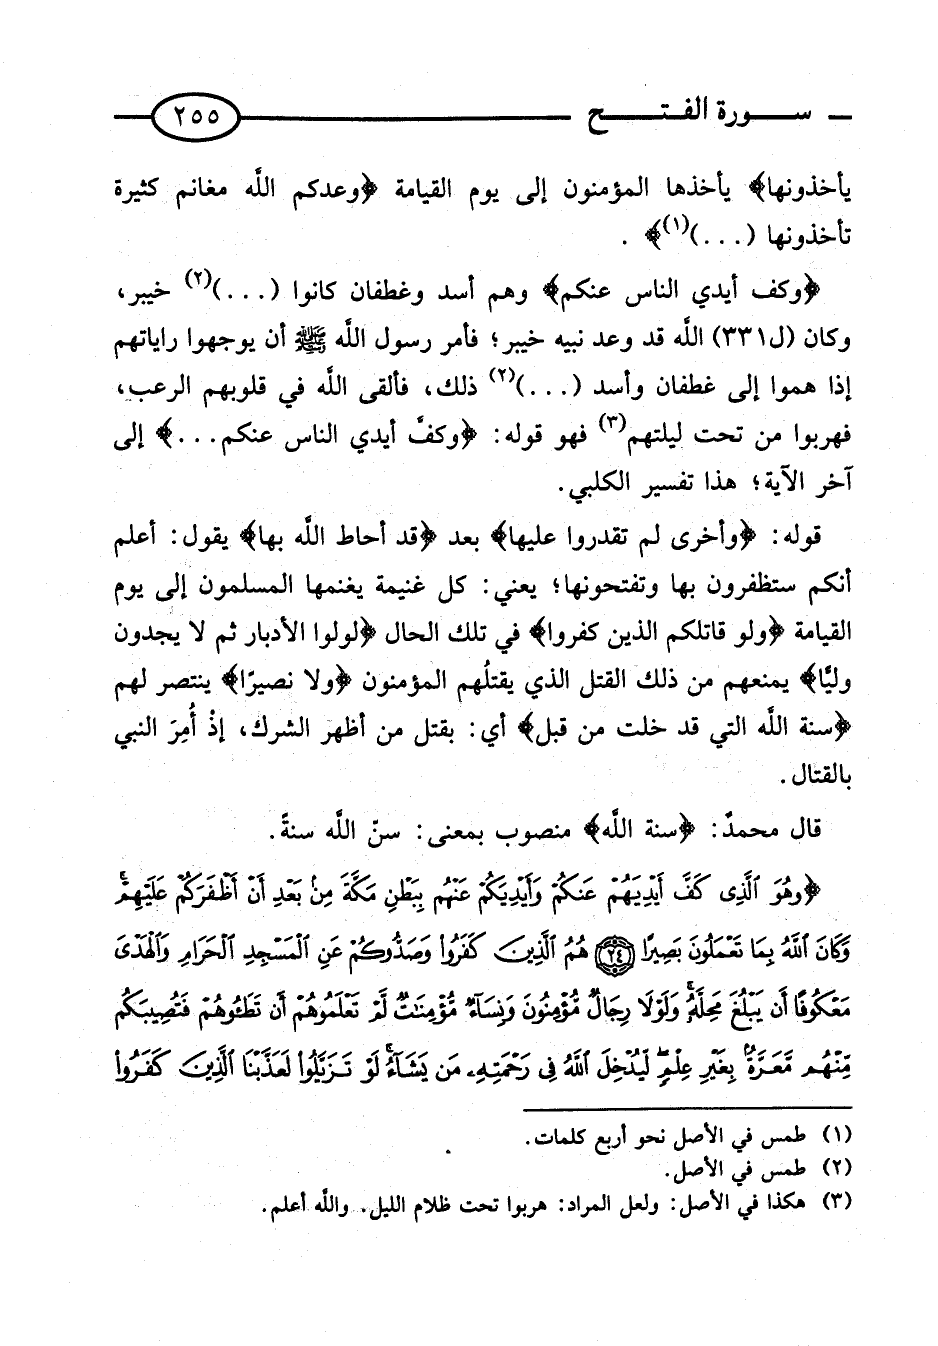 سورة الفتح ٢٥٥
يأخذونها﴾ يأخذها المؤمنون إلى يوم القيامة ﴿وعدكم اللَّه مغانم كثيرة
تأخذونها (...)(١)﴾ .
﴿وكف أيدي الناس عنكم﴾ وهم أسد وغطفان كانوا (...)(٢) خيبر،
وكان (ل٣٣١) اللَّه قد وعد نبيه خيبر؛ فأمر رسول اللَّه ﷺ أن يوجهوا راياتهم
إذا هموا إلى غطفان وأسد (...)(٢) ذلك، فألقى اللَّه في قلوبهم الرعب،
فهربوا من تحت ليلتهم(٣) فهو قوله: ﴿وكفَّ أيدي الناس عنكم...﴾ إلى
آخر الآية؛ هذا تفسير الكلبي.
قوله: ﴿وأخرى لم تقدروا عليها﴾ بعد ﴿قد أحاط اللَّه بها﴾ يقول: أعلم
أنكم ستظفرون بها وتفتحونها؛ يعني: كل غنيمة يغنمها المسلمون إلى يوم
القيامة ﴿ولو قاتلكم الذين كفروا﴾ في تلك الحال ﴿لولوا الأدبار ثم لا يجدون
وليًّا﴾ يمنعهم من ذلك القتل الذي يقتلُهم المؤمنون ﴿ولا نصيرًا﴾ ينتصر لهم
﴿سنة اللَّه التي قد خلت من قبل﴾ أي: بقتل من أظهر الشرك، إذْ أُمِرَ النبي
بالقتال.
قال محمدٌ: ﴿سنة اللَّه﴾ منصوب بمعنى: سنّ اللَّه سنةً.
﴿وَهُوَ ٱلَّذِى كَفَّ أَيْدِيَهُمْ عَنكُمْ وَأَيْدِيَكُمْ عَنْهُم بِبَطْنِ مَكَّةَ مِنۢ بَعْدِ أَنْ أَظْفَرَكُمْ عَلَيْهِمْ ۚ
وَكَانَ ٱللَّهُ بِمَا تَعْمَلُونَ بَصِيرًا ٢٤ هُمُ ٱلَّذِينَ كَفَرُوا۟ وَصَدُّوكُمْ عَنِ ٱلْمَسْجِدِ ٱلْحَرَامِ وَٱلْهَدْىَ
مَعْكُوفًا أَن يَبْلُغَ مَحِلَّهُۥ ۚ وَلَوْلَا رِجَالٌ مُّؤْمِنُونَ وَنِسَآءٌ مُّؤْمِنَـٰتٌ لَّمْ تَعْلَمُوهُمْ أَن تَطَـُٔوهُمْ فَتُصِيبَكُم
مِّنْهُم مَّعَرَّةٌۢ بِغَيْرِ عِلْمٍ ۖ لِّيُدْخِلَ ٱللَّهُ فِى رَحْمَتِهِۦ مَن يَشَآءُ ۚ لَوْ تَزَيَّلُوا۟ لَعَذَّبْنَا ٱلَّذِينَ كَفَرُوا۟
(١) طمس في الأصل نحو أربع كلمات.
(٢) طمس في الأصل.
(٣) هكذا في الأصل: ولعل المراد: هربوا تحت ظلام الليل. واللَّه أعلم.